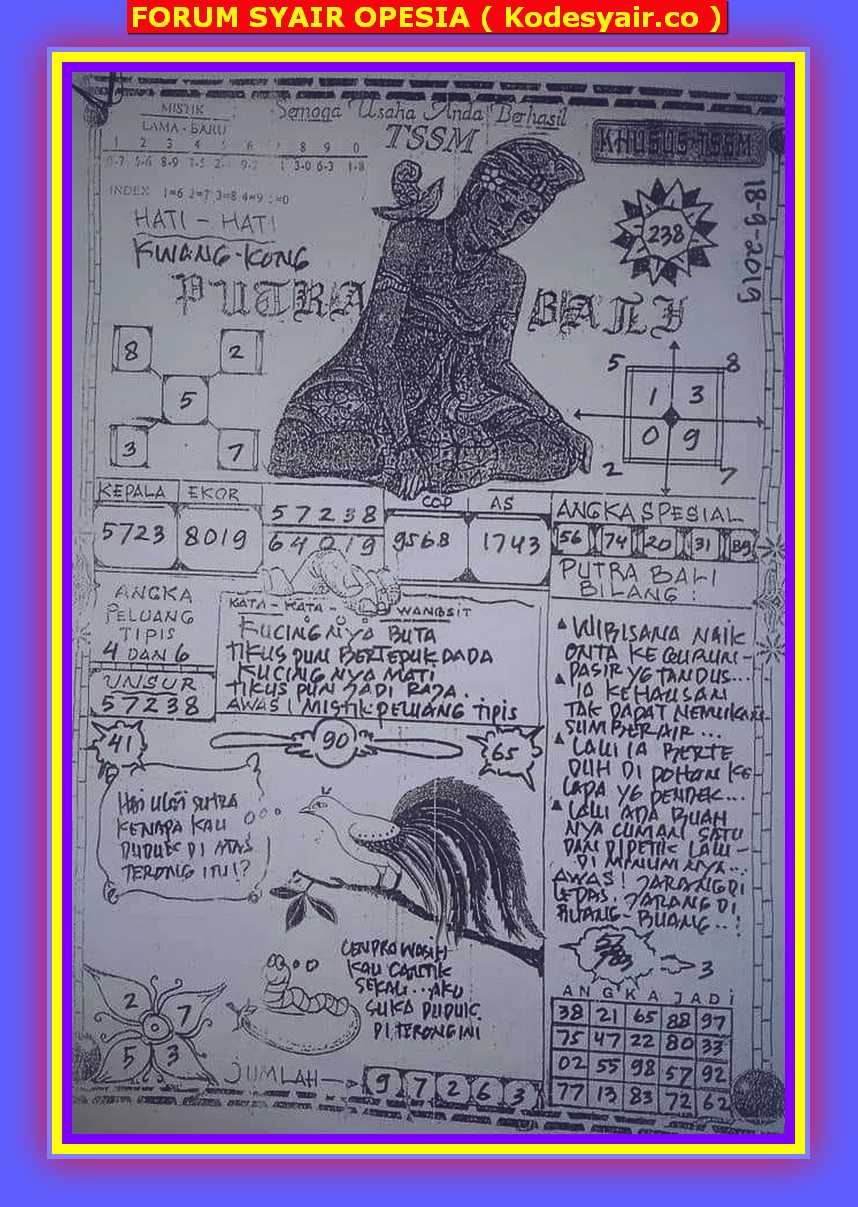 FORUM SYAIR OPESIA ( Kodesyair.co )
MISTIK
LAMA - BARU
Semoga Usaha Anda Berhasil
TSSM
KHUSUS-TSSM
1 2 3 4 5 6 8 9 0
0-7 5-6 8-9 1 3-0 6-3 1-8
INDEX 1=6 2=7 3=8 4=9 5=0
HATI - HATI
KWANG-KONG
PUTRA BALI
238
18-9-2019
8 2
5
3 7
5 8
1 3
0 9
2 7
KEPALA EKOR
5723 8019
57238
64019
COP AS
9568 1743
ANGKA SPESIAL
56 74 20 31 89
ANGKA
PELUANG
TIPIS
4 DAN 6
UNSUR
57238
KATA - KATA - WANGSIT
KUCINGNYA BUTA
TIKUS PUN BERTEPUK DADA
KUCINGNYA MATI
TIKUS PUN JADI RAJA.
AWAS! MISTIK-PELUANG TIPIS
PUTRA BALI
BILANG :
WIBISANA NAIK
ONTA KE GURUN-
PASIR YG TANDUS...
IA KEHAUSAN
TAK DAPAT NEMUKAN
SUMBER AIR...
LALU IA BERTE
DUH DI POHON KE
LAPA YG PENDEK...
LALU ADA BUAH
NYA CUMAN SATU
DAN DIPETIK LALU-
DI MINUMNYA...
AWAS! JARANG DI
LEPAS. JARANG DI
BUANG-BUANG..!
41
90
65
HAI ULAT SUTRA
KENAPA KAU
DUDUK DI ATAS
TERONG ITU!?
CENDRAWASIH
KAU CANTIK
SEKALI...AKU
SUKA DUDUK
DI TERONG INI
3
2 7
5 3
JUMLAH
9 7 2 6 3
ANGKA JADI
38 21 65 88 97
75 47 22 80 33
02 55 98 57 92
77 13 83 72 62